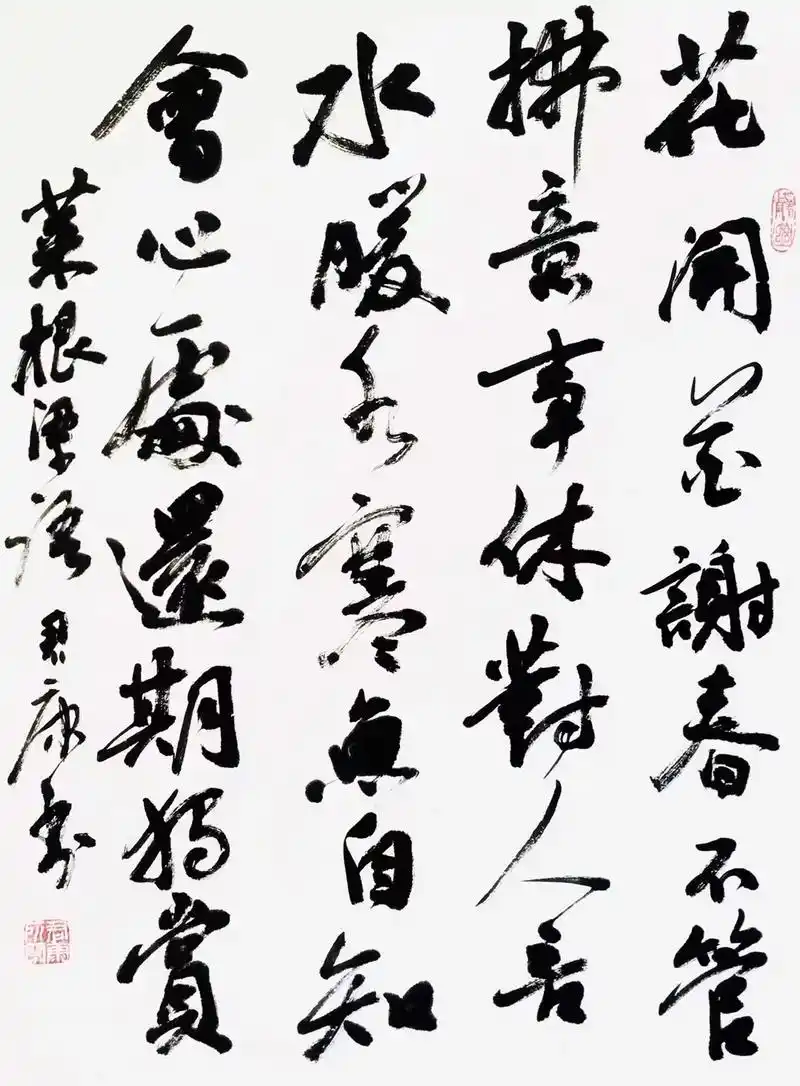 花開花謝春不管
拂意事休對人言
水暖水寒魚自知
會心處還期獨賞
菜根譚語 君康書